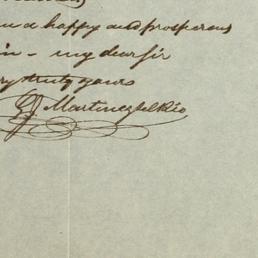 a happy and prosperous
in - my dear sir
truly yours
Martinez del Rio